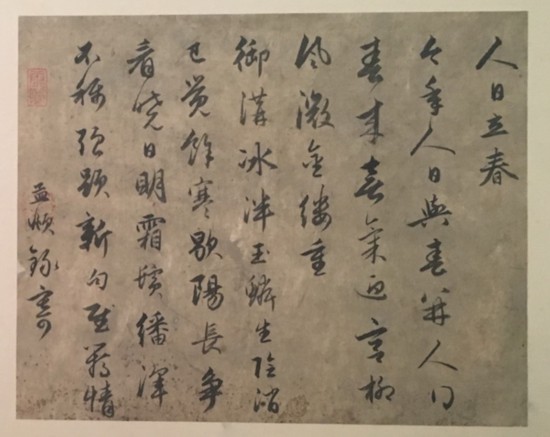 人日立春
今年人日與春并人得
春來喜氣迎宮柳
風微金縷重
御溝冰泮玉鱗生陰消
已覺餘寒歇陽長爭
看曉日明霜鬢幡渾
不稱強題新句慰羈情
孟頫錄寄